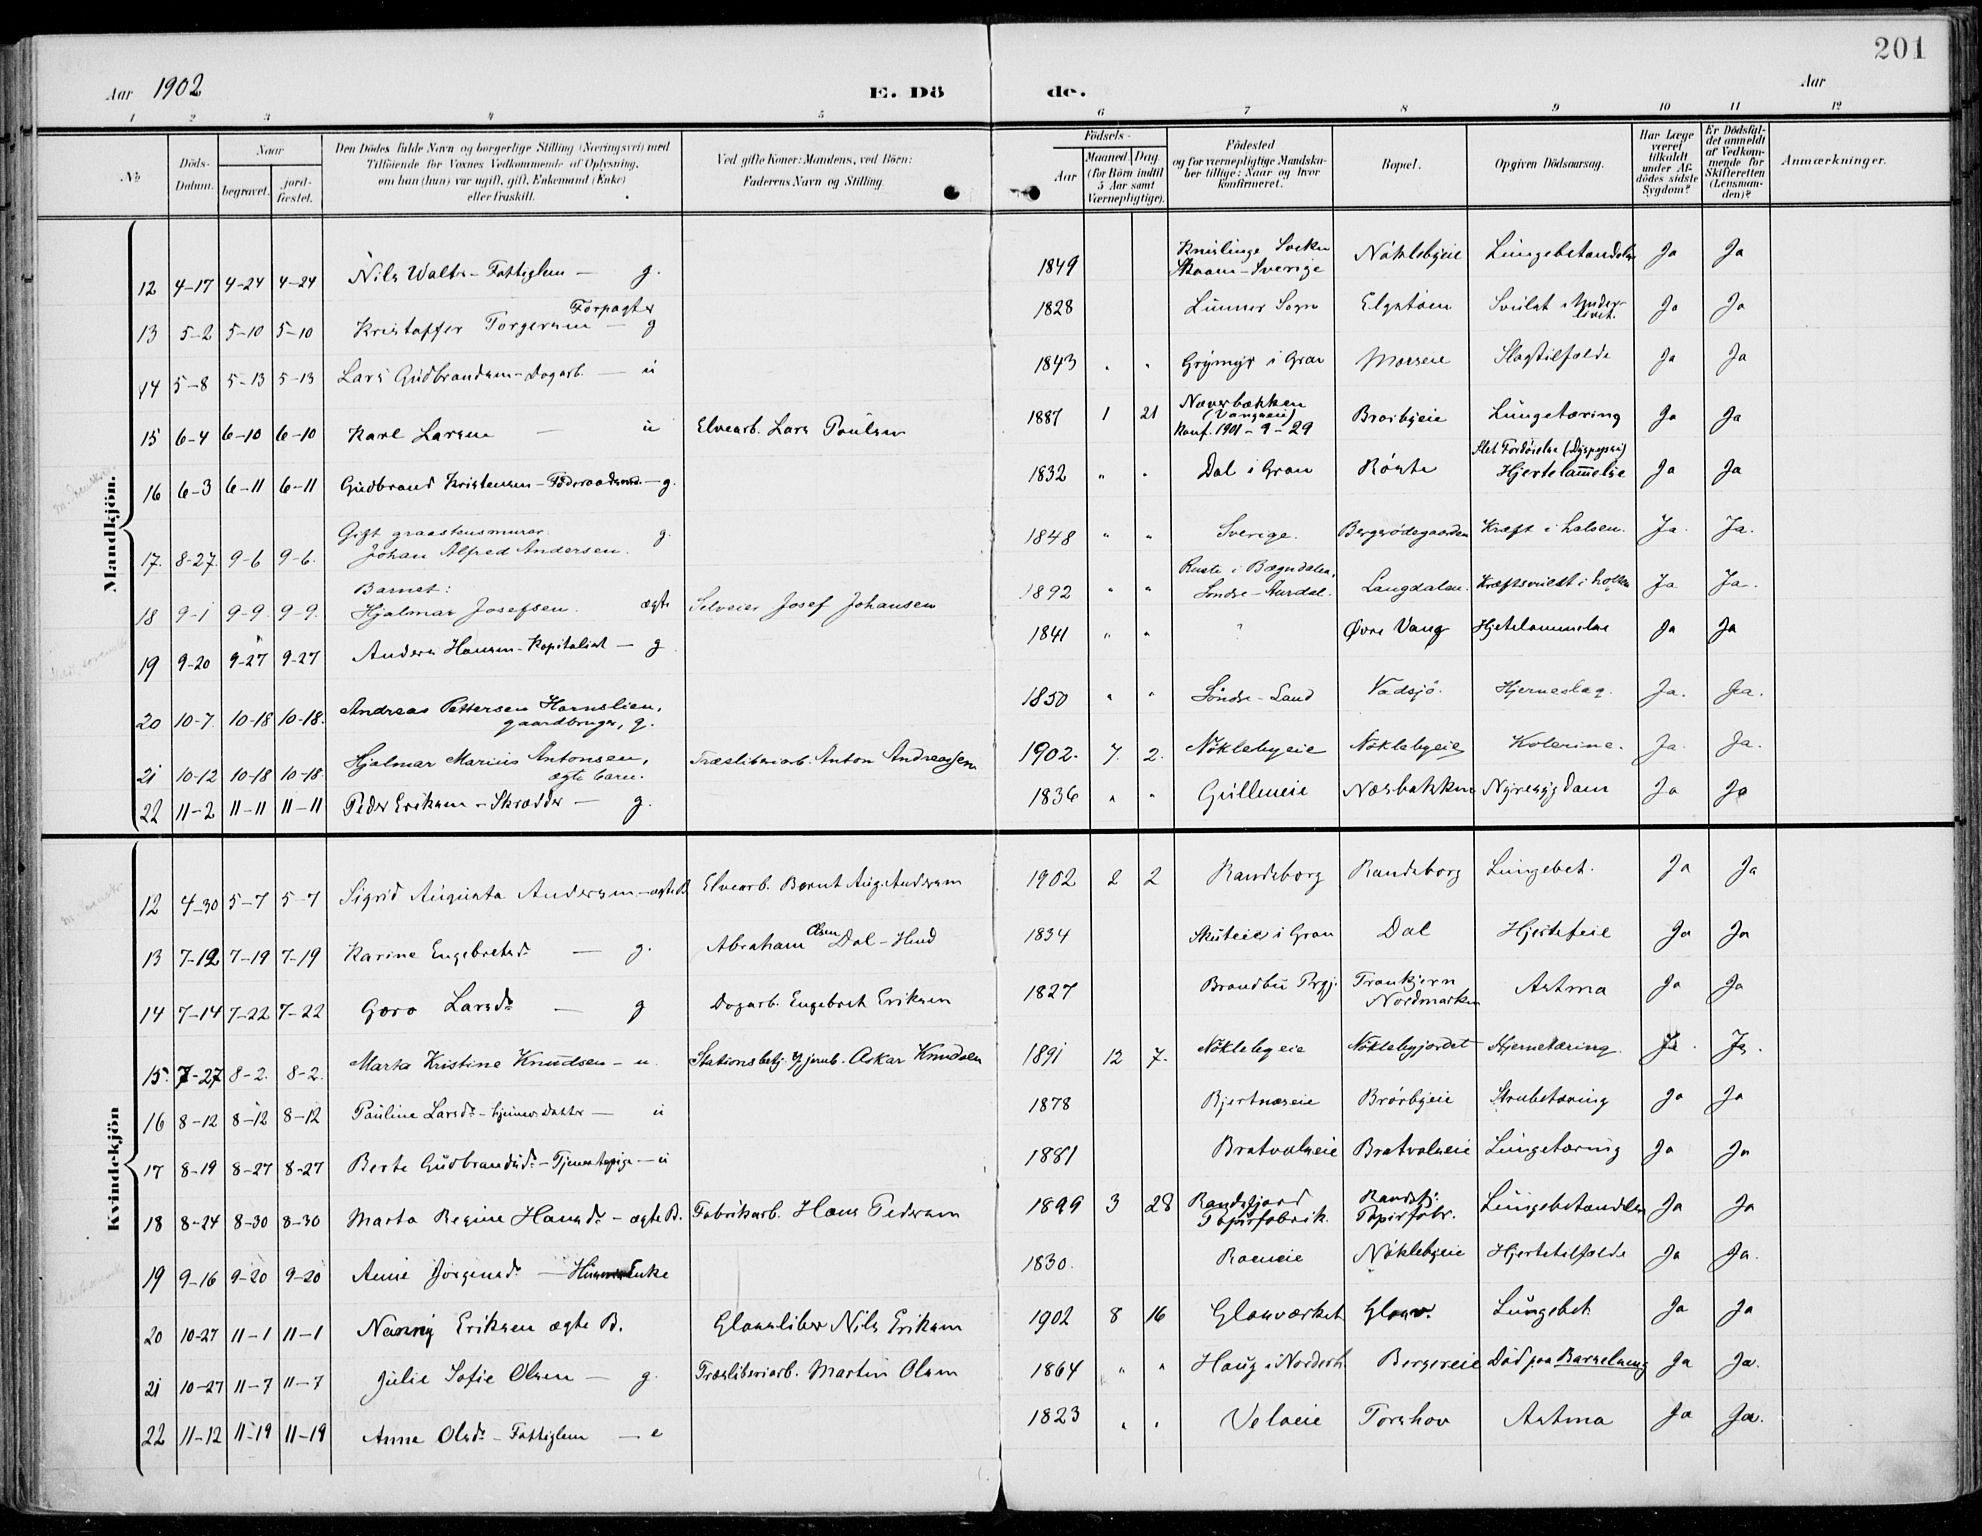 201
Aar 1902
E. Dö
de.
Aar
1 2 3 4 5 6 7 8 9 10 11 12
№
Döds-Datum.
Naar
begravet.
jord-fæstet.
Den Dödes fulde Navn og borgerlige Stilling (Næringsvei) med
Tilföiende for Voxnes Vedkommende af Oplysning,
om han (hun) var ugift, gift, Enkemand (Enke)
eller fraskilt.
Ved gifte Koner: Mandens, ved Börn:
Faderens Navn og Stilling.
Födsels-
Aar
Maaned. Dag.
(for Börn indtil
5 Aar samt
Værnepligtige).
Födested
og for værnepligtige Mandska-
ber tillige: Naar og hvor
konfirmeret.
Bopæl.
Opgiven Dödsaarsag.
Har Læge
været
tilkaldt
under Af-
dödes sidste
Sygdom?
Er Dödsfal-
det anmeldt
af Vedkom-
mende for
Skifteretten
(Lensman-
den)?
Anmærkninger.
Mandkjön.
12 4-17 4-24 4-24 Nils Walter - Fattiglem - g. 1849 Knislinge Socken Skaane - Sverige Nöklebyeie Lungebetændelse Ja Ja
13 5-2 5-10 5-10 Kristoffer Torgersen - Forpagter g 1828 Lunner Sogn Elgstøen Svulst i Under-livet. Ja Ja
14 5-8 5-13 5-13 Lars Gudbrandsen - Dagarb. - u 1843 " " Grymyr i Gran Morseie Slagtilfælde Ja Ja
15 6-4 6-10 6-10 Karl Larsen - u Elvearb. Lars Paulsen 1887 1 21 Næverbækken (Vangseie) Konf. 1901-9-29 Brorbyeie Lungetæring Ja Ja
16 6-3 6-11 6-11 Gudbrand Kristensen - Föderaadsmd. - g. 1832 " " Dal i Gran Röste Slet Fordöielse (Dyspepsi) Hjertelammelse Ja Ja
17. 8-27. 9-6 9-6. Gift graastensmurer Johan Alfred Andersen. g. 1848 " " Sverige. Bergsrødegaarden Kræft i halsen. Ja. Ja.
18 9-1 9-9. 9-9. Barnet: Hjalmar Josefsen. ægte Selveier Josef Johansen 1892 " " Ruste i Bægndalen, Söndre-Aurdal. Langdalen. Kræftsvulst i hoften Ja Ja.
19 9-20 9-27 9-27 Anders Hansen - Kapitalist - g 1841 " " ? Øvre Vang Hjertelammelse Ja Ja
20 10-7. 10-18 10-18. Andreas Pettersen Hornslien, gaardbruger, g. 1850 " " Söndre-Land Vadsjö. Hjerneslag. Ja. Ja.
21 10-12 10-18 10-18. Hjalmar Marius Antonsen, ægte barn. Træsliberiarb. Anton Andreassen 1902. 7. 2. Nöklebyeie Nöklebyeie Kolerine. Ja. Ja.
22 11-2 11-11 11-11 Peder Eriksen - Skrædder - g. 1836 " " Gulleneie Næsbakken Nyresygdom Ja Ja
Kvindekjön
12 4-30 5-7 5-7 Sigrid Augusta Andersen - ægte B. Elvearb. Bernt Aug. Andersen 1902 2 2 Randsborg Randsborg Lungebet. Ja Ja
13 7-12 7-19 7-19 Karine Engebretsdr - g. Abraham Olsen Dal - Hmd 1834 Skuteie i Gran Dal Hjertefeil Ja Ja
14 7-14 7-22 7-22 Goro Larsdr - g Dagarb. Engebret Eriksen 1827 Brandbu Prgj. Trantjern Nordmarken Astma Ja Ja
15. 7-27 8-2. 8-2. Marta Kristine Knudsen - u. Stationsbetj. v/jernb. Oskar Knudsen 1891 12 7. Nöklebyeie Nöklebyjordet Hjernetæring. Ja. Ja.
16 8-12 8-12 8-12 Pauline Larsdr - hjemmev. Datter - u 1878 Bjertnæseie Brörbyeie Strubetæring Ja Ja
17 8-19 8-27 8-27 Berte Gudbrandsdr - Tjenestepige - u 1881 Bratvalseie Bratvalseie Lungetæring Ja Ja
18 8-24 8-30 8-30 Marta Regine Hansdr - ægte B. Fabrikarb. Hans Pedersen 1899 3 28 Randsfjord Papirfabrik. Randsfj. Papirfabr. Lungebetændelse Ja Ja
19 9-16 9-20 9-20 Anne Jörgensdr - Enke 1830. Roeneie Nöklebyeie Hjertetilfælde Ja Ja.
20 10-27 11-1 11-1 Nanny Eriksen ægte B. Glassliber Nils Eriksen 1902 8 16 Glasværket Glasv. Lungebet. Ja Ja
21 10-27 11-7 11-7 Julie Sofie Olsen - g. Træsliberiarb. Martin Olsen 1864 " " Haug i Norderh. Bergereie Död paa Barselseng Ja Ja.
22 11-12 11-19 11-19 Anne Olsdr - Fattiglem - e 1823 " " Velseie Torshov Astma Ja Ja.